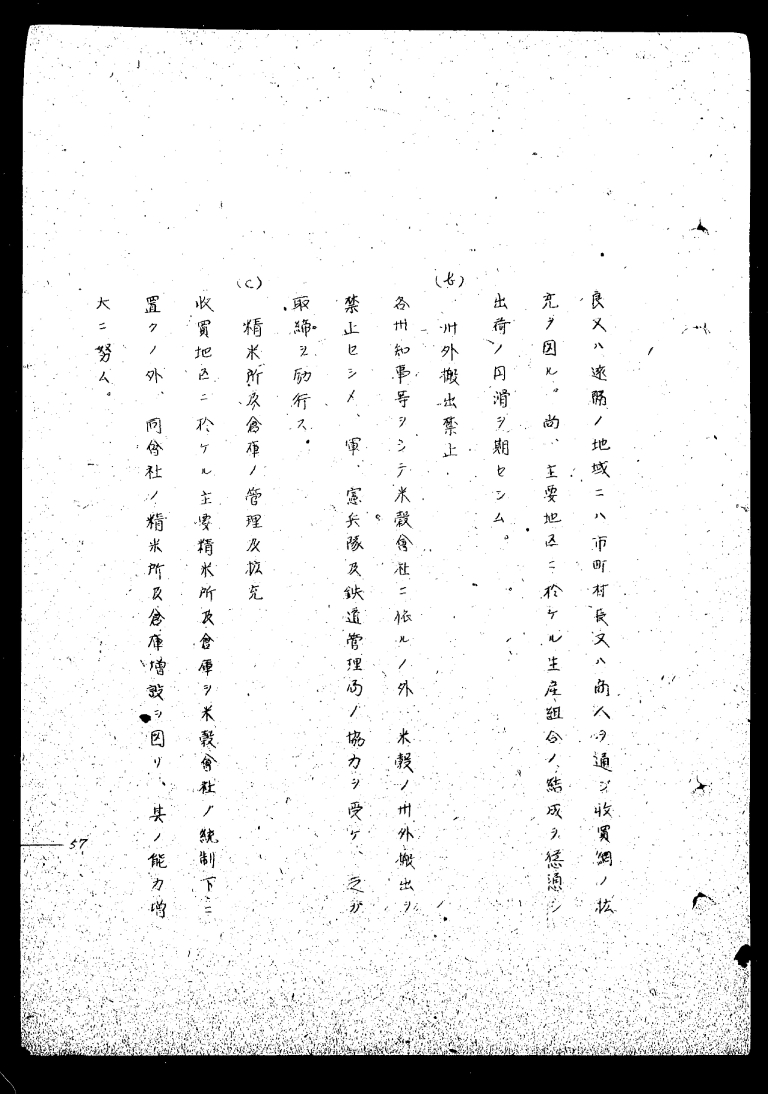 良又ハ遠隔ノ地域ニハ市町村長又ハ商人ヲ通ジ收買網ノ拡
充ヲ図ル。尚、主要地区ニ於ケル生産組合ノ結成ヲ慫慂シ
出荷ノ円滑ヲ期セシム。
(b) 州外搬出禁止
各州知事等ヲシテ米穀會社ニ依ルノ外、米穀ノ州外搬出ヲ
禁止セシメ、軍、憲兵隊及鉄道管理局ノ協力ヲ受ケ、之ガ
取締ヲ励行ス。
(c) 精米所及倉庫ノ管理及拡充
收買地区ニ於ケル主要精米所及倉庫ヲ米穀會社ノ統制下ニ
置クノ外、同會社ノ精米所及倉庫増設ヲ図リ、其ノ能力増
大ニ努ム。
57